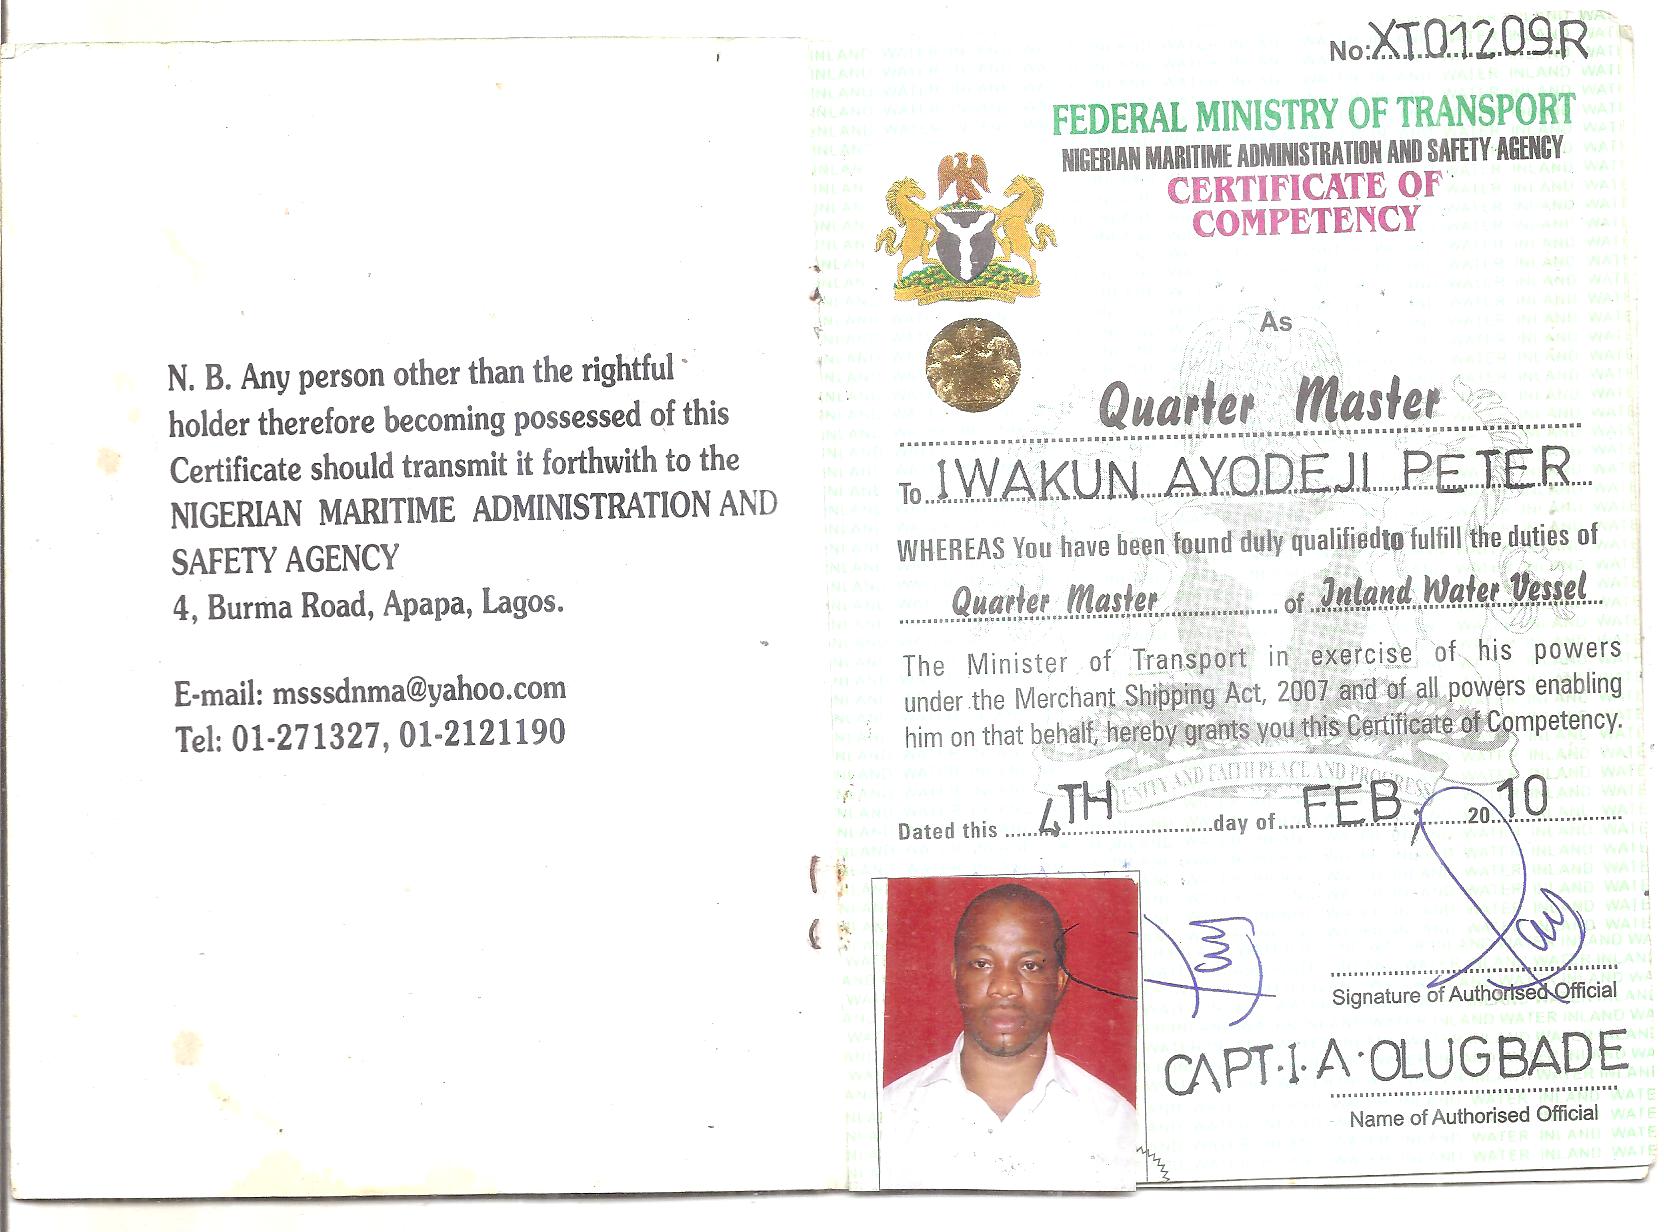 N. B. Any person other than the rightful
holder therefore becoming possessed of this
Certificate should transmit it forthwith to the
NIGERIAN MARITIME ADMINISTRATION AND
SAFETY AGENCY
4, Burma Road, Apapa, Lagos.
E-mail: msssdnma@yahoo.com
Tel: 01-271327, 01-2121190
No: XT01209R
FEDERAL MINISTRY OF TRANSPORT
NIGERIAN MARITIME ADMINISTRATION AND SAFETY AGENCY
CERTIFICATE OF
COMPETENCY
As
Quarter Master
To IWAKUN AYODEJI PETER
WHEREAS You have been found duly qualifiedto fulfill the duties of
Quarter Master of Inland Water Vessel
The Minister of Transport in exercise of his powers
under the Merchant Shipping Act, 2007 and of all powers enabling
him on that behalf, hereby grants you this Certificate of Competency.
UNITY AND FAITH PEACE AND PROGRESS
Dated this 4TH day of FEB, 2010
Signature of Authorised Official
CAPT. I. A. OLUGBADE
Name of Authorised Official